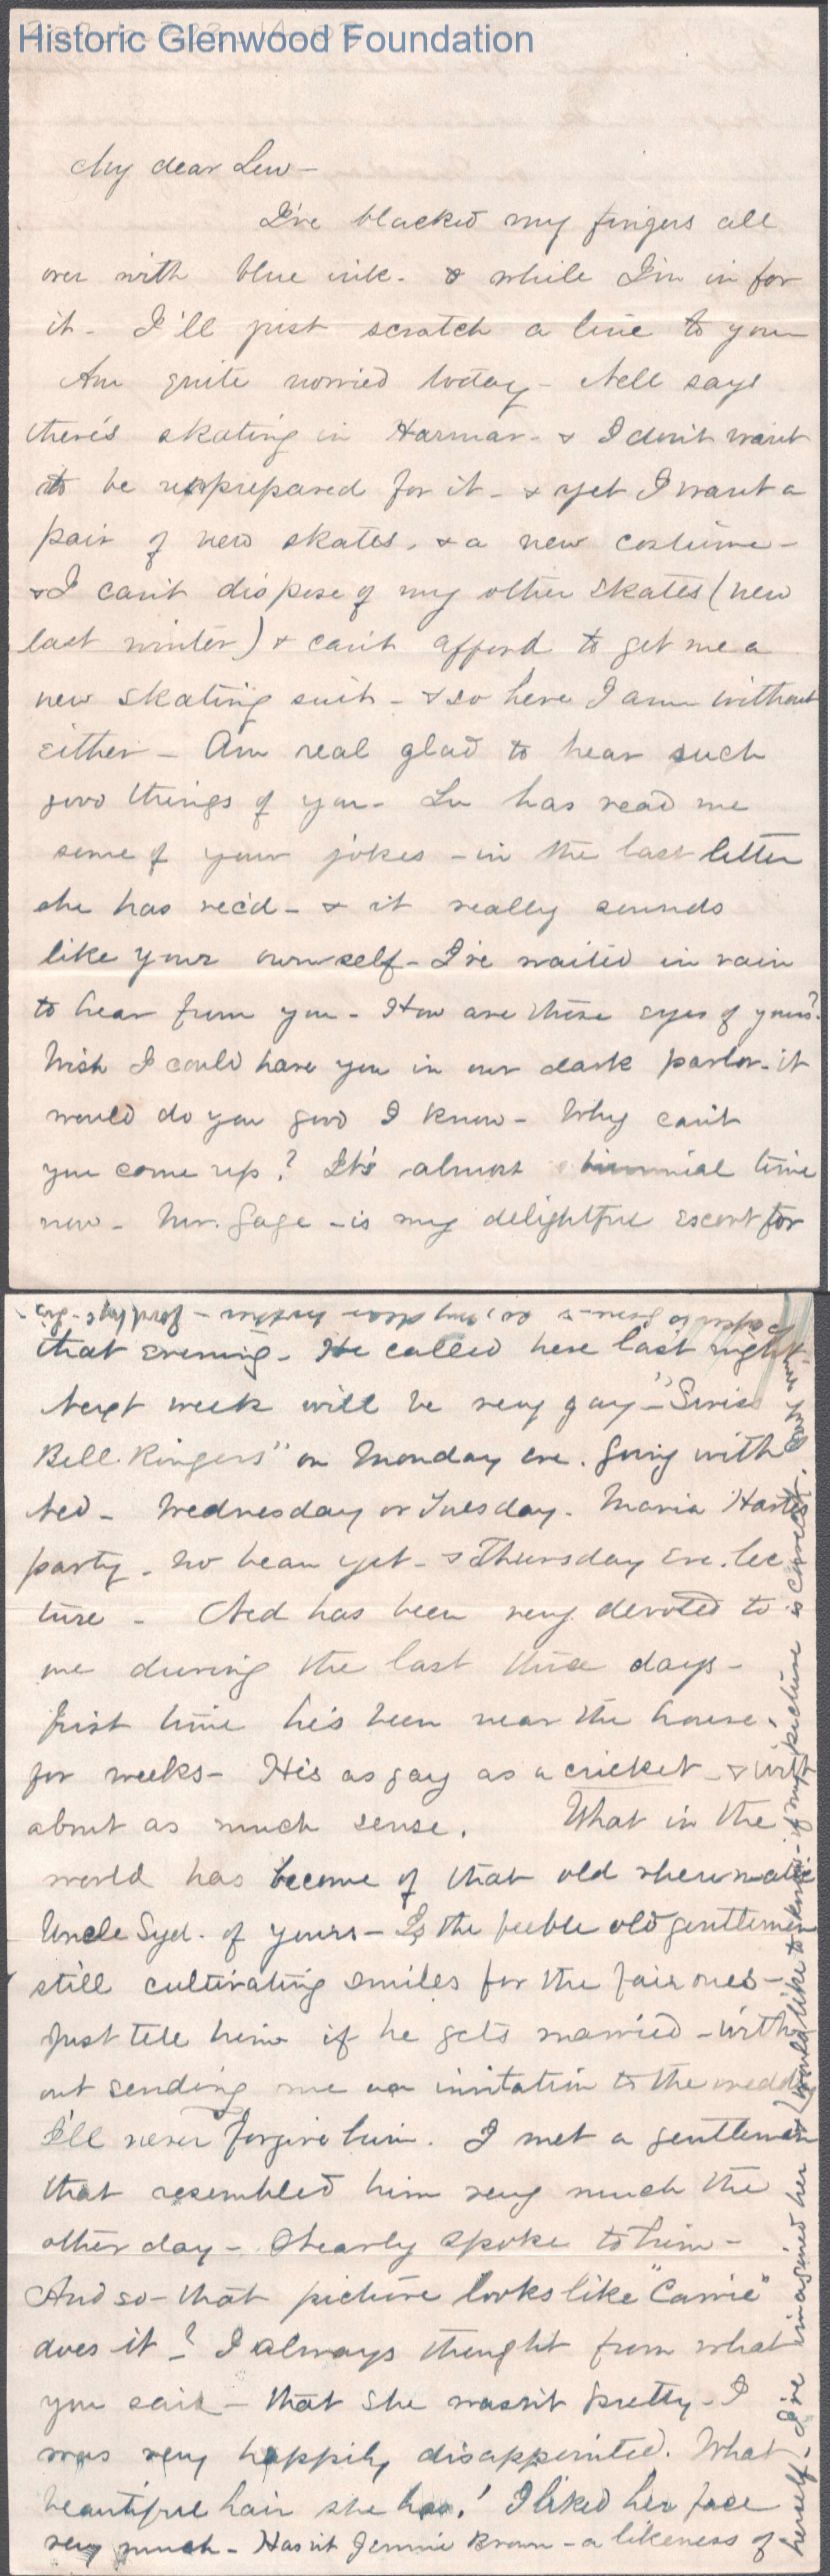 Historic Glenwood Foundation
My dear Lew -
I've blacked my fingers all
over with blue ink. & while I'm in for
it - I'll just scratch a line to you -
Am quite worried today - Nell says
there's skating in Harmar - & I don't want
to be unprepared for it - & yet I want a
pair of new skates, & a new costume -
& I can't dispose of my other skates (new
last winter) & can't afford to get me a
new skating suit - & so here I am without
either - Am real glad to hear such
good things of you - Lu has read me
some of your jokes - in the last letter
she has rec'd - & it really sounds
like your ownself - I've waited in vain
to hear from you - How are those eyes of yours?
Wish I could have you in our dark parlor - it
would do you good I know - Why can't
you come up? It's almost biennial time
now - Mr. Gage - is my delightful escort for
that evening - He called here last night -
Next week will be very gay - "Swiss
Bell Ringers" on Monday eve. going with
Ned - Wednesday or Tuesday. Maria Harte's
party - no beau yet - & Thursday Eve. lec
ture - Ned has been very devoted to
me during the last three days -
first time he's been near the house,
for weeks - He's as gay as a cricket - & with
about as much sense. What in the
world has become of that old rheumatic
Uncle Syd. of yours - Is the feeble old gentleman
still cultivating smiles for the fair ones -
Just tell him if he gets married - with
out sending me an invitation to the wedding
I'll never forgive him. I met a gentleman
that resembled him very much the
other day - Nearly spoke to him -
And so - that picture looks like "Carrie"
does it? I always thought from what
you said - that she wasn't pretty - I
was very happily disappointed. What
beautiful hair she has! I liked her face
very much - Hasn't Jennie Brown - a likeness of
herself - I've imagined her & would like to know - if my picture is correct.